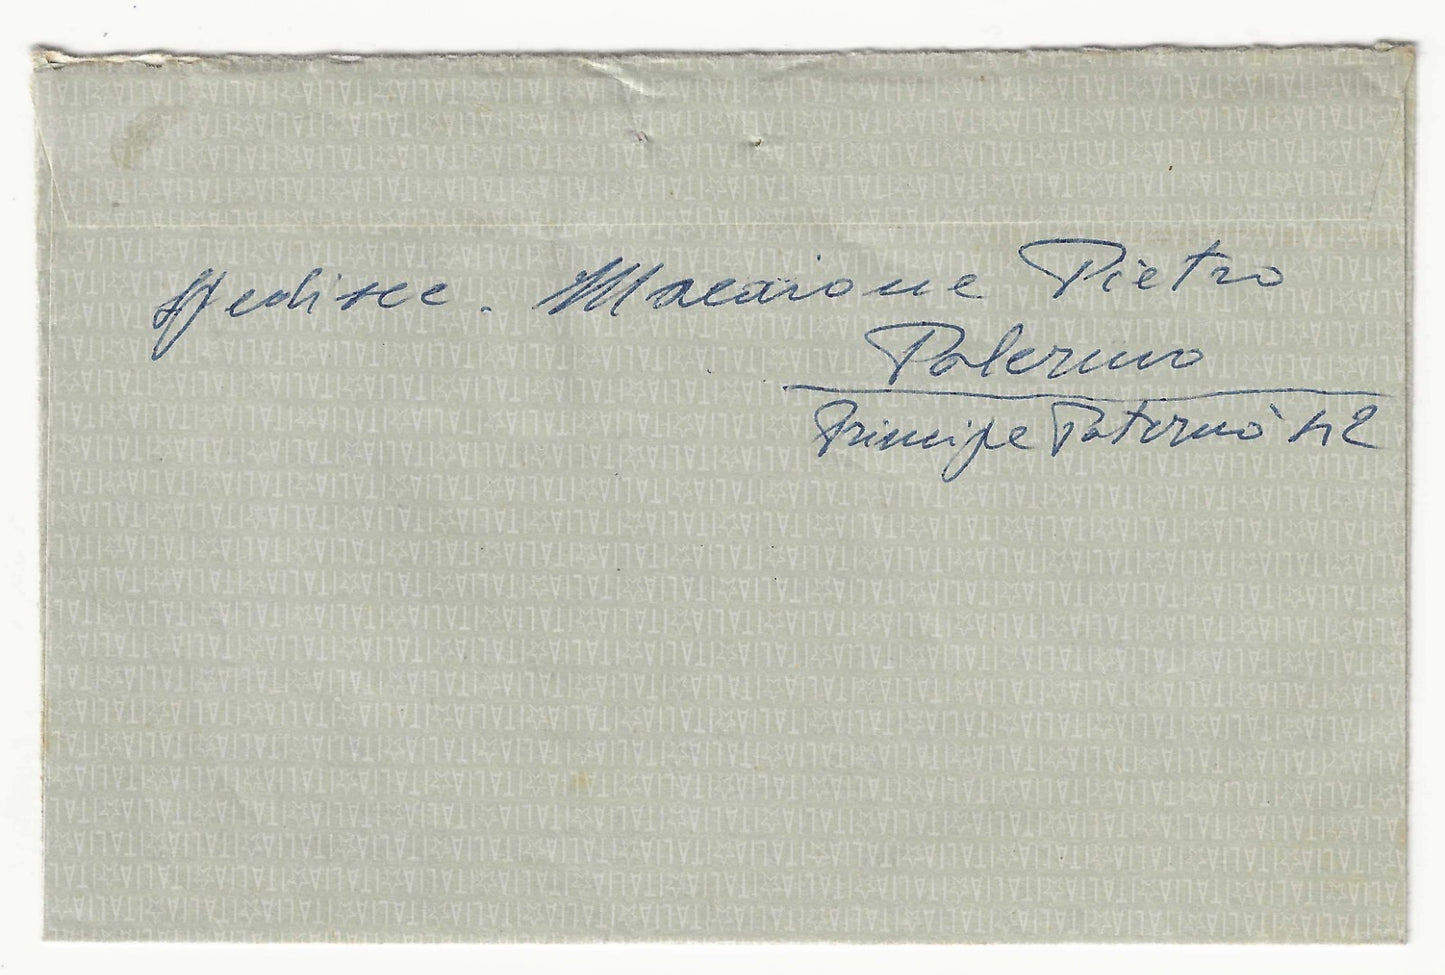 spedisce. Macaione Pietro
Palermo
Principe Paternò 42